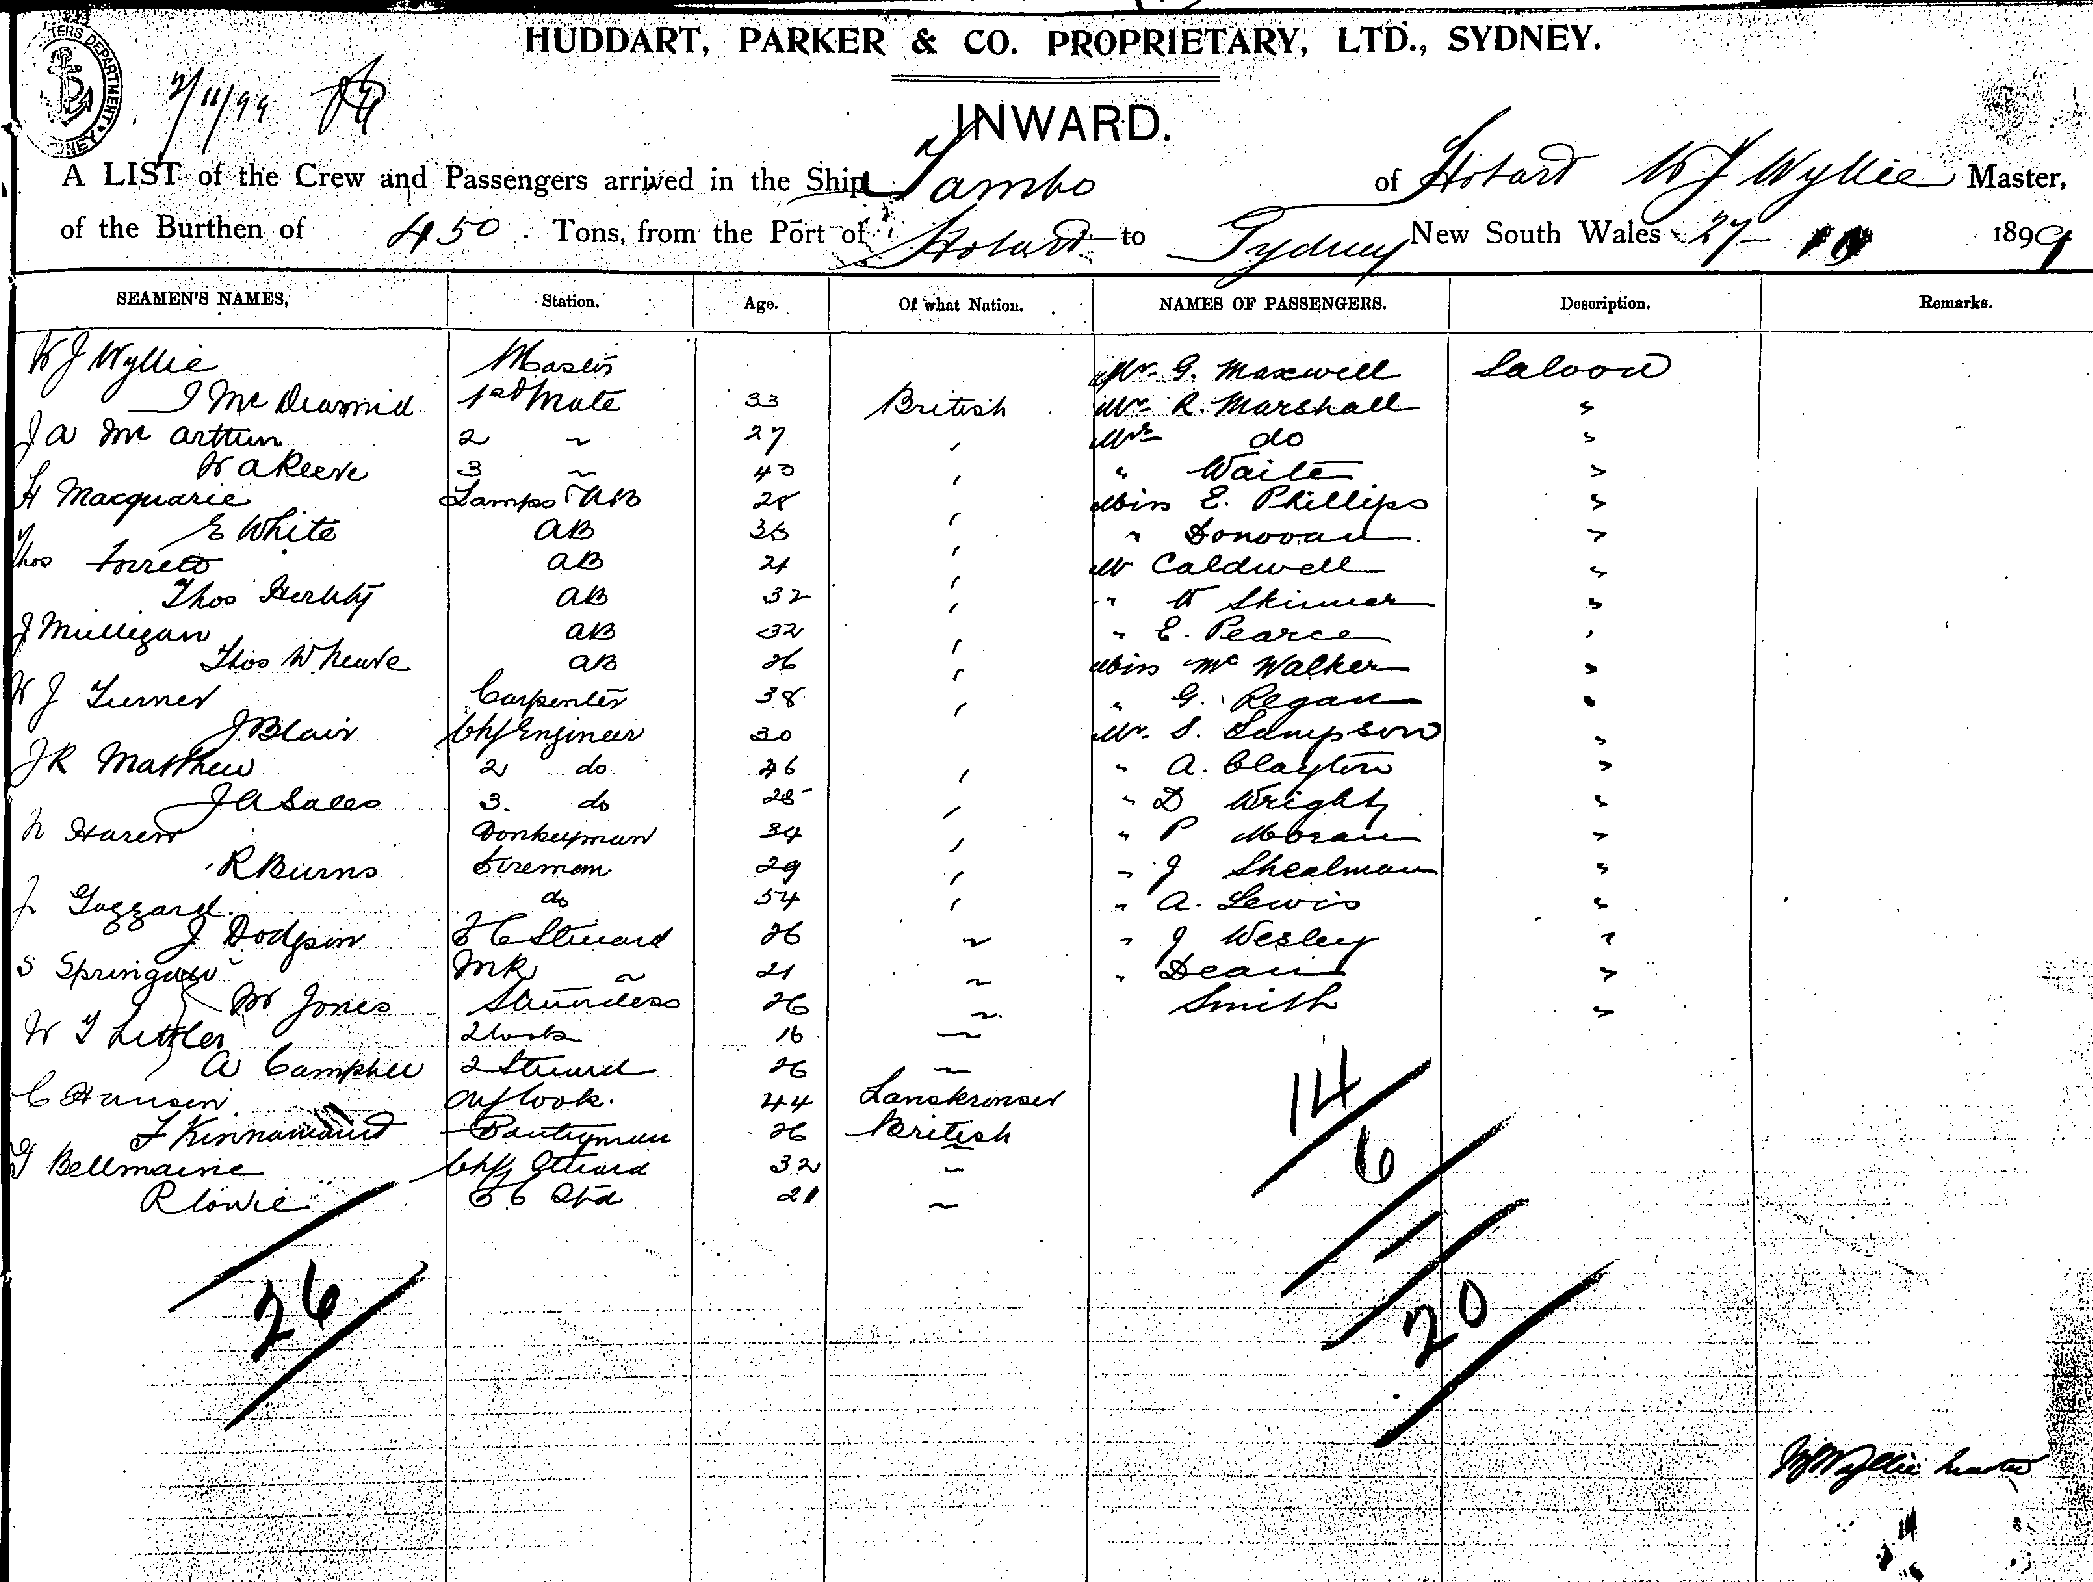 HUDDART, PARKER & CO. PROPRIETARY, LTD., SYDNEY.
2/11/99
INWARD.
A LIST of the Crew and Passengers arrived in the Ship Tambo of Hobart W J Wyllie Master,
of the Burthen of 450 Tons, from the Port of Hobart to Sydney New South Wales 27 - 10 1899
SEAMEN'S NAMES, Station. Age. Of what Nation. NAMES OF PASSENGERS. Description. Remarks.
W J Wyllie Master Mr. G. Maxwell Saloon
J Mc Diarmid 1st Mate 33 British Mr. R. Marshall "
J A Mc Arthur 2 " 27 " Mrs do "
W A Reeve 3 " 40 " " Waite "
H Macquarie Lamps & AB 28 " Miss E. Phillips "
E White AB 36 " " Donovan "
Thos AB 21 " Mr Caldwell "
Thos AB 32 " " Skinner "
J Milligan AB 32 " " E. Pearce "
Thos AB 26 " Miss Mc Walker "
W J Turner Carpenter 38 " " G. Regan "
J Blair Chf Engineer 30 Mr. S. Sampson "
J R Matthew 2 do 46 " " A. Clayton "
J A Sales 3. do 28 " " D Wright "
Donkeyman 34 " " P Moran "
R Burns Fireman 29 " " J Shealman "
do 54 " " A. Lewis "
J Dodgson F C Steward 26 " " J Wesley "
S 21 " " Dean "
W Jones Saunders 26 " Smith "
W T Littler 2 Cook 16 "
A 2 Steward 26 "
C Hansen Chf Cook. 44
F Pantryman 26 British
G Bellmaine Chf Steward 32 "
R Cowie F C Std 21 "
14
6
26
20
W J Wyllie Master